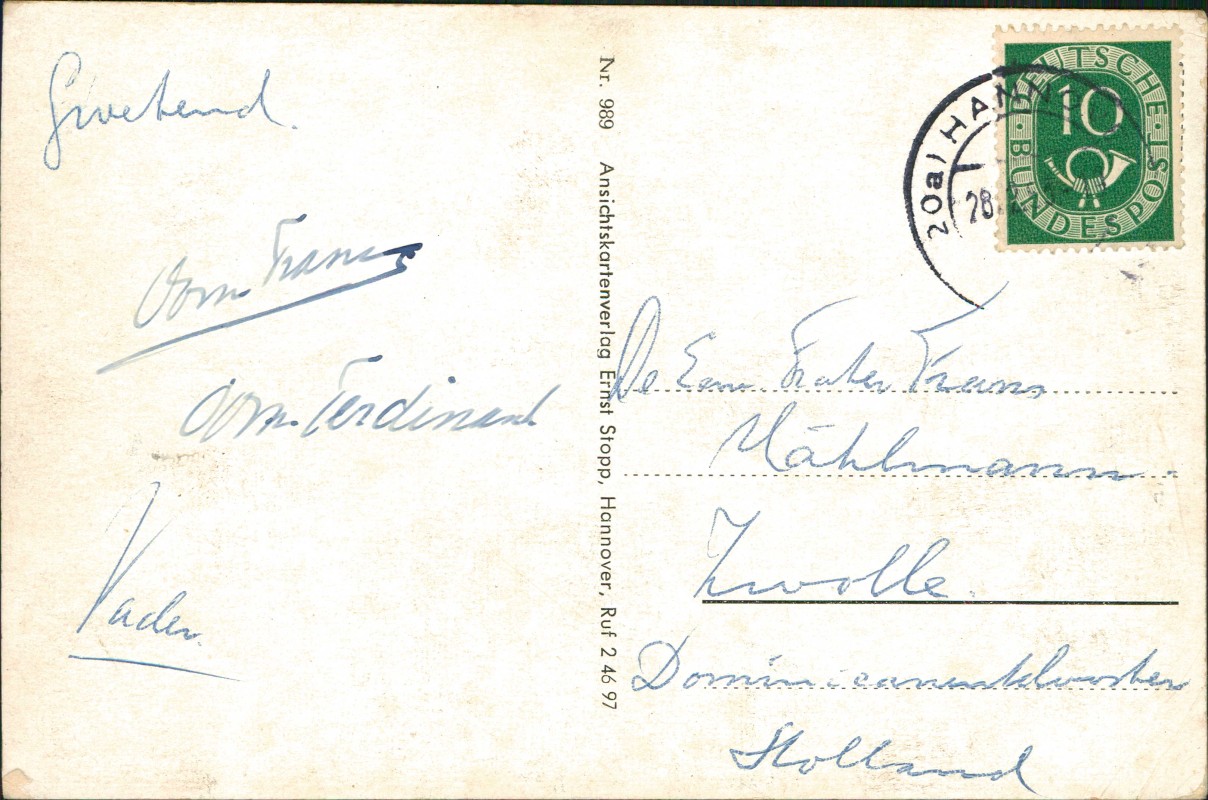 Groetend.
Oom Frans
Oom Ferdinand
Vader.
Nr. 989 Ansichtskartenverlag Ernst Stopp, Hannover, Ruf 2 46 97
DEUTSCHE BUNDESPOST
10
20a) HANNO
28
De Eerw Frater Frans
Mählmann.
Zwolle.
Dominicanenklooster
Holland